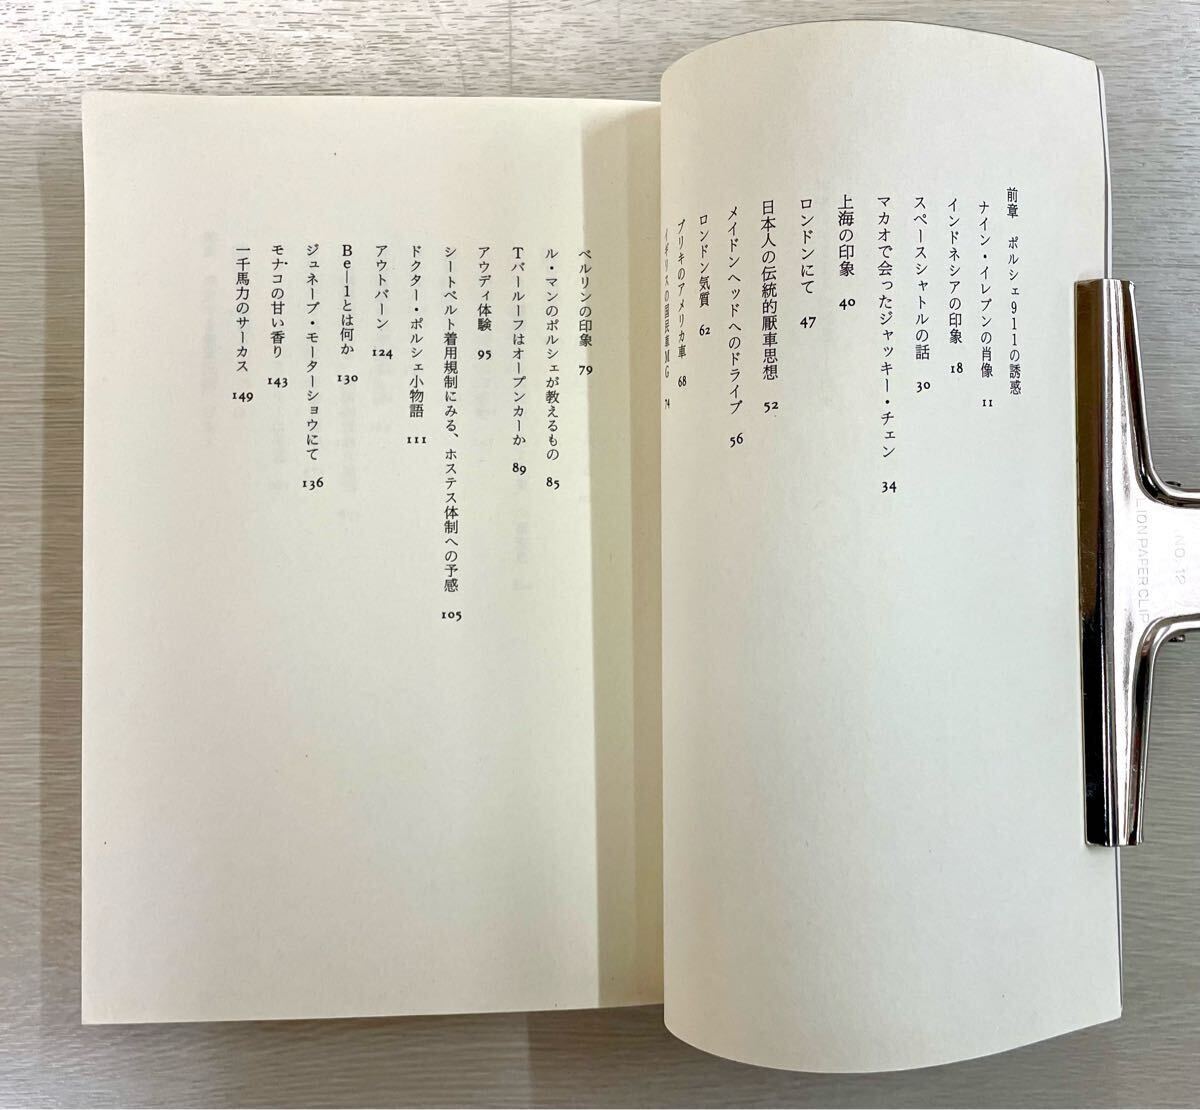 前章 ポルシェ911の誘惑
ナイン・イレブンの肖像 11
インドネシアの印象 18
スペースシャトルの話 30
マカオで会ったジャッキー・チェン 34
上海の印象 40
ロンドンにて 47
日本人の伝統的厭車思想 52
メイドンヘッドへのドライブ 56
ロンドン気質 62
ブリキのアメリカ車 68
イギリスの国民車MG 74
ベルリンの印象 79
ル・マンのポルシェが教えるもの 85
Tバールーフはオープンカーか 89
アウディ体験 95
シートベルト着用規制にみる、ホステス体制への予感 105
ドクター・ポルシェ小物語 111
アウトバーン 124
Be—1とは何か 130
ジュネーブ・モーターショウにて 136
モナコの甘い香り 143
一千馬力のサーカス 149
NO. 12
LION PAPER CLIP